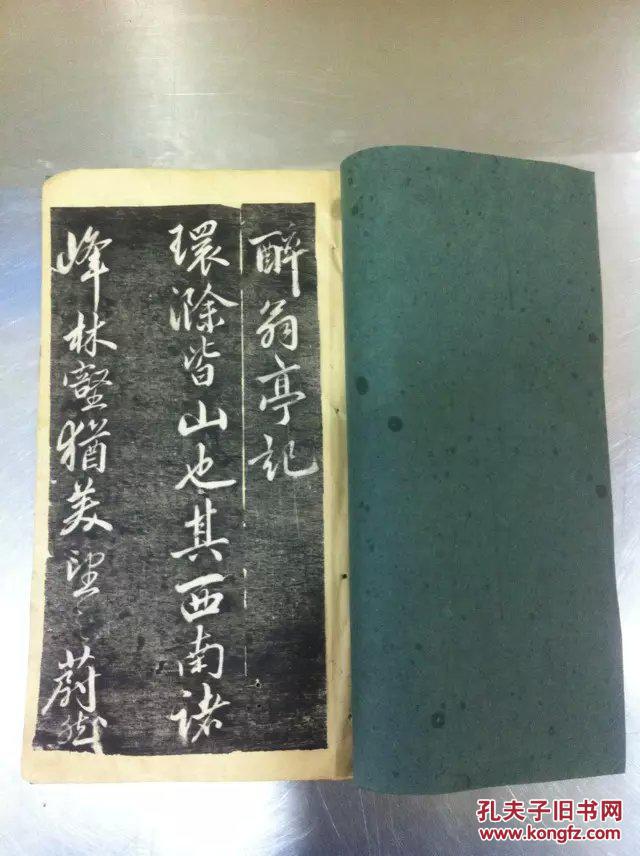 醉翁亭記
環滁皆山也其西南諸
峰林壑猶美望之蔚然
孔夫子旧书网
www.kongfz.com